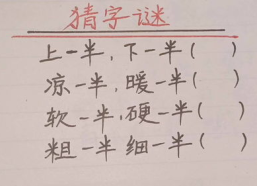 猜字谜
上一半，下一半（ ）
凉一半，暖一半（ ）
软一半，硬一半（ ）
粗一半 细一半（ ）